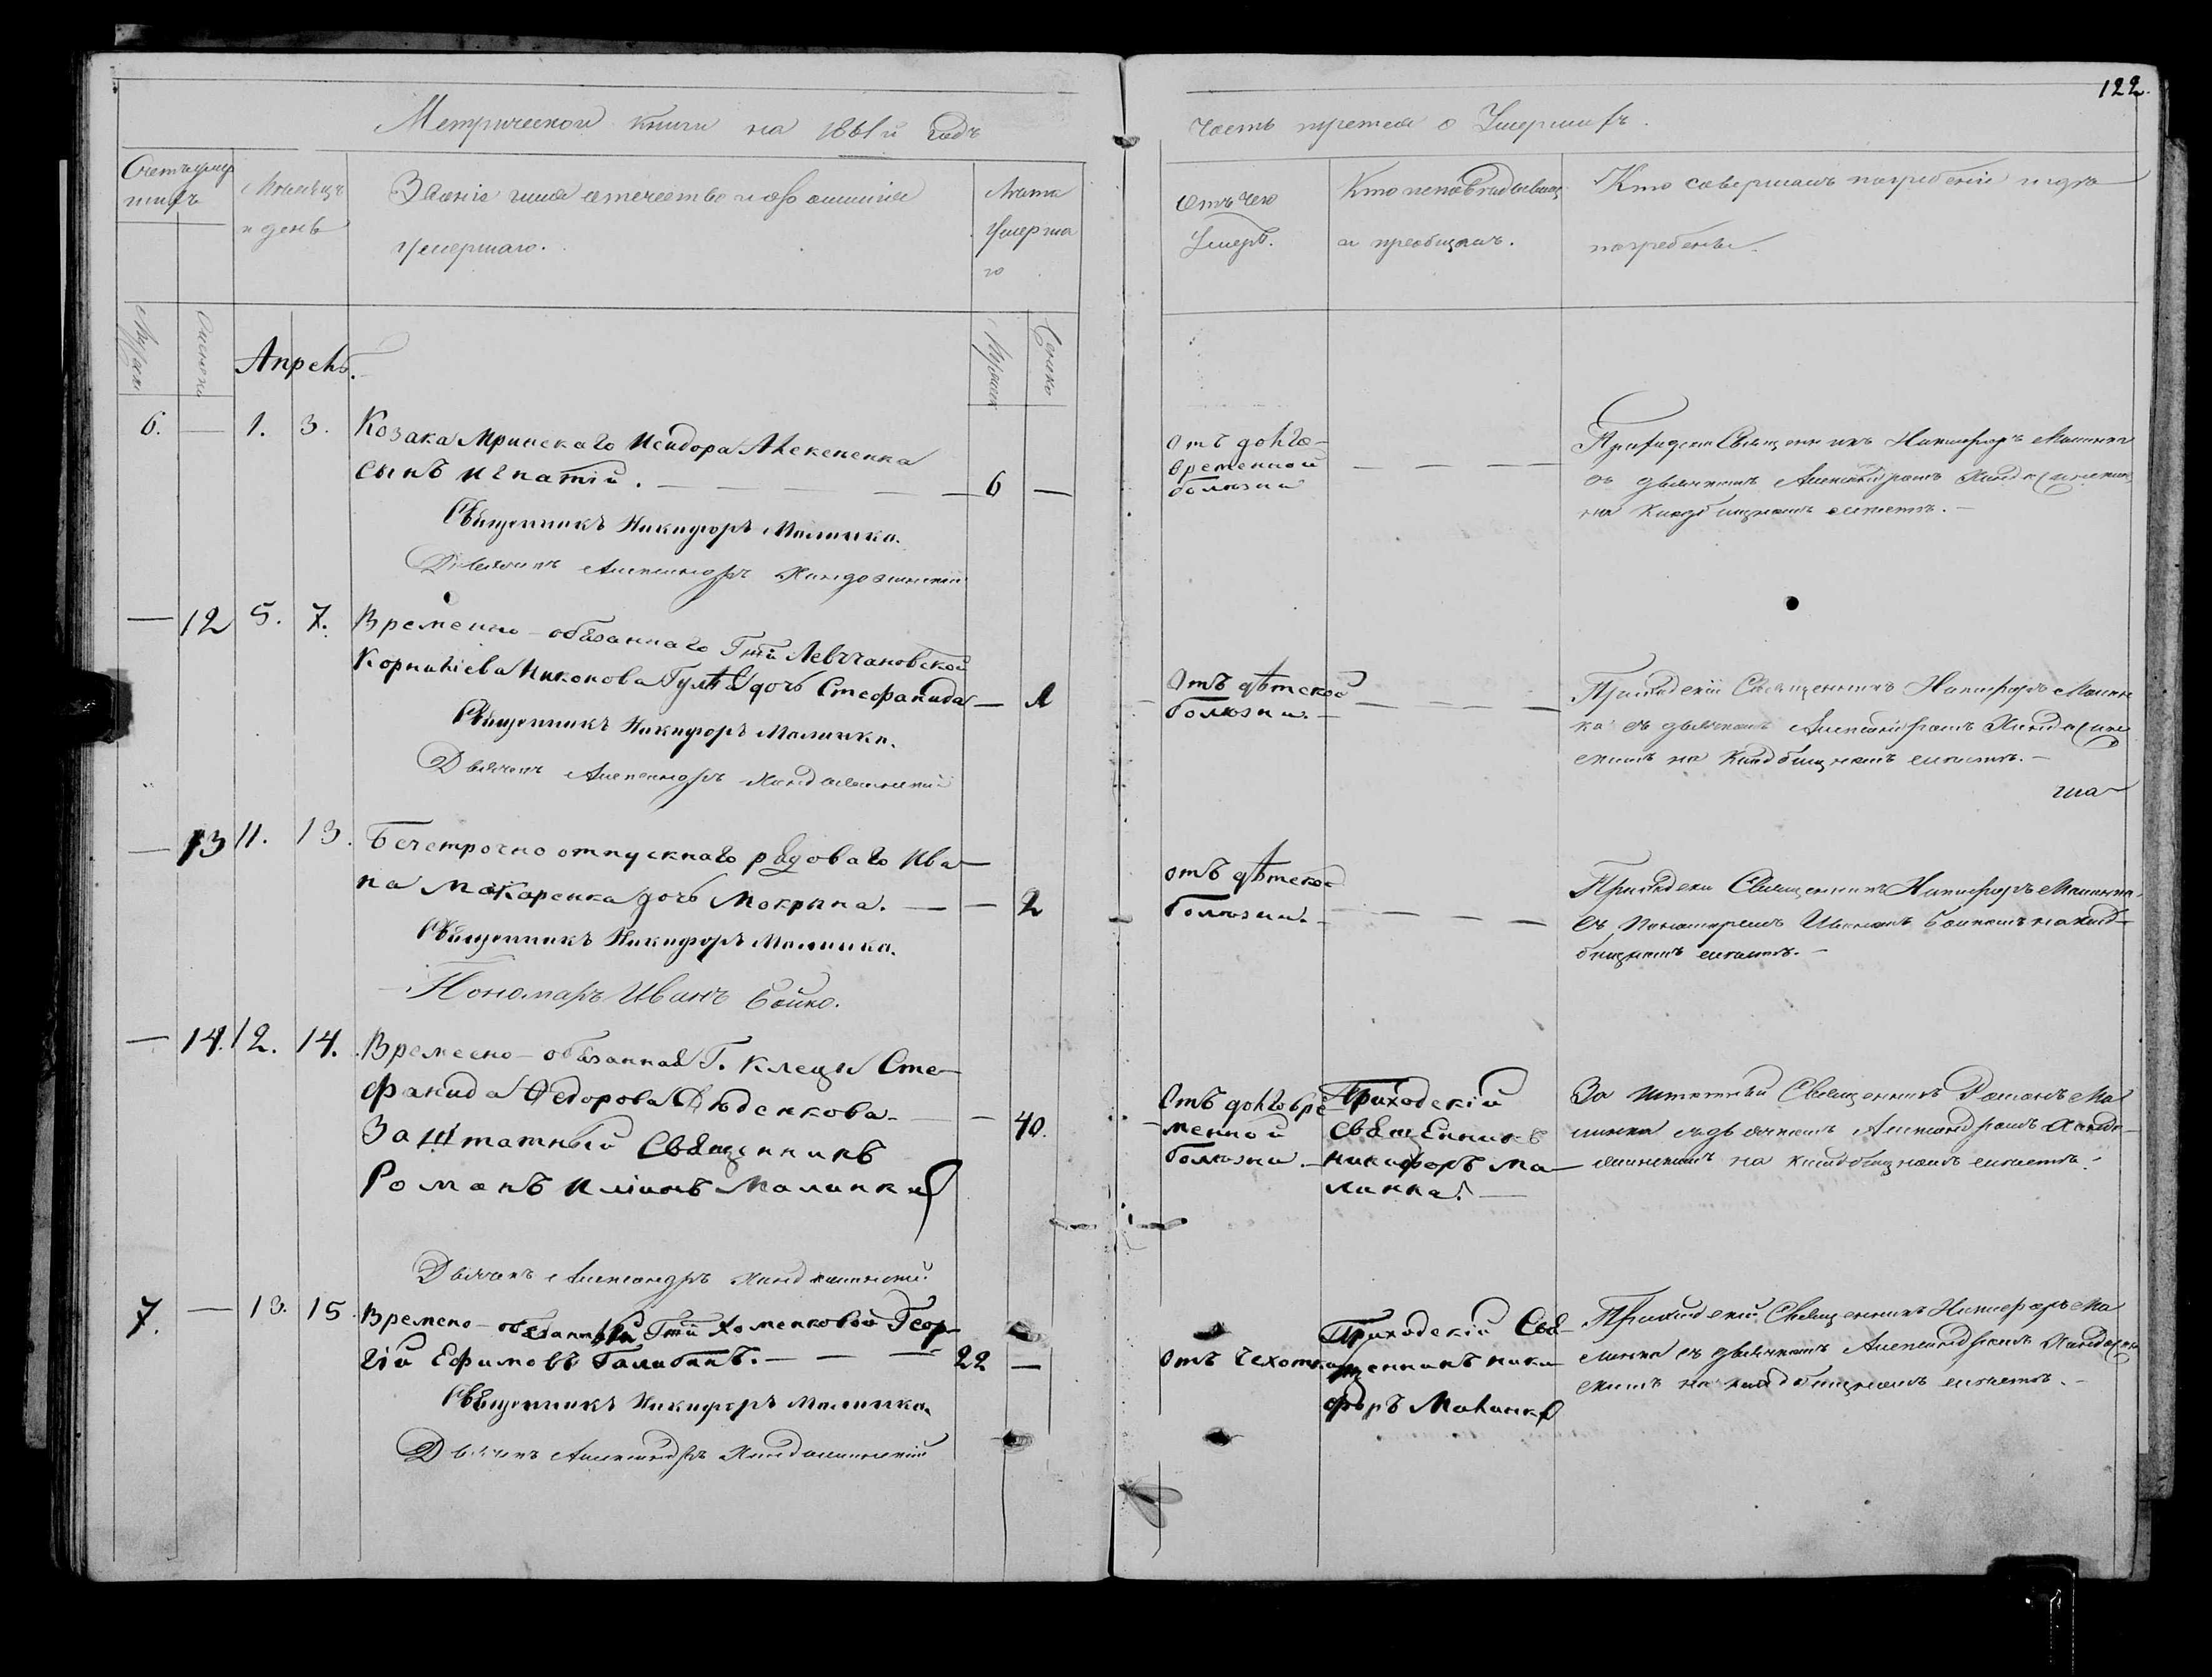 122.
Метрической книги на 1861й годъ
часть третея о Умершихъ.
Счетъ умер
шихъ
Месяцъ
и день
Званіе имя отечество и фамилія
умершаго.
Лета
Умерша
го
Отъ чего
Умеръ.
Кто исповѣдывалъ
и преобщалъ.
Кто совершалъ погребеніе и где
погребены.
Мужеск
Женски
Апрель.
Мужеск
Женско
6. — 1. 3.
Козака Мринскаго Исидора Алексеенка
сынъ Игнатій. — 6 —
Священникъ Никифоръ Малинка.
Дьячокъ Александръ
Отъ долго-
временной
болезни
Приходски Священникъ Никифоръ Малинка
съ дьячкомъ Александромъ
на кладбищномъ месте. —
— 12 5. 7.
Временно-обязаннаго Гжи Левчановской
Корнилiева Никонова Гуля дочь Стефанида — 1
Священникъ Никифоръ Малинка.
Дьячокъ Александръ
Отъ дѣтской
болезни. —
Приходскій Священникъ Никифоръ Малин
ка съ дьячкомъ Александромъ
скимъ на кладбищномъ месте. —
— 13 11. 13.
Безсрочно отпускнаго рядоваго Ива
на Макаренка дочь Мокрина. — — 2
Священникъ Никифоръ Малинка.
Пономарь Иванъ Бойко.
отъ дѣтской
болезни. —
Приходски Священникъ Никифоръ Малинка
съ Пономаремъ Иваномъ Бойкомъ на клад-
бищномъ месте. —
— 14. 12. 14.
Времено-обязанная Г. Клецы Сте-
фанида Федорова Дюденкова — — 40.
Заштатный Священникъ
Романъ Иліинъ Малинка
Дьячокъ Александръ
Отъ долговре
менной
болезни. —
Приходскій
Священникъ
Никифоръ Ма-
линка. —
За штатный Священникъ Романъ Ма
линка съ дьячкомъ Александромъ
на кладбищномъ месте.
7. — 13. 15.
Времено-обязанный Гжи Хоменковой Геор-
гій Ефимовъ Галибинъ. — — — 22 —
Священникъ Никифоръ Малинка.
Дьячокъ Александръ
Отъ чехотки
Приходскій Свя-
щенникъ Ники
форъ Малинка
Приходскій Священникъ Никифоръ Ма
линка съ дьячкомъ Александромъ
скимъ на кладбищномъ месте. —